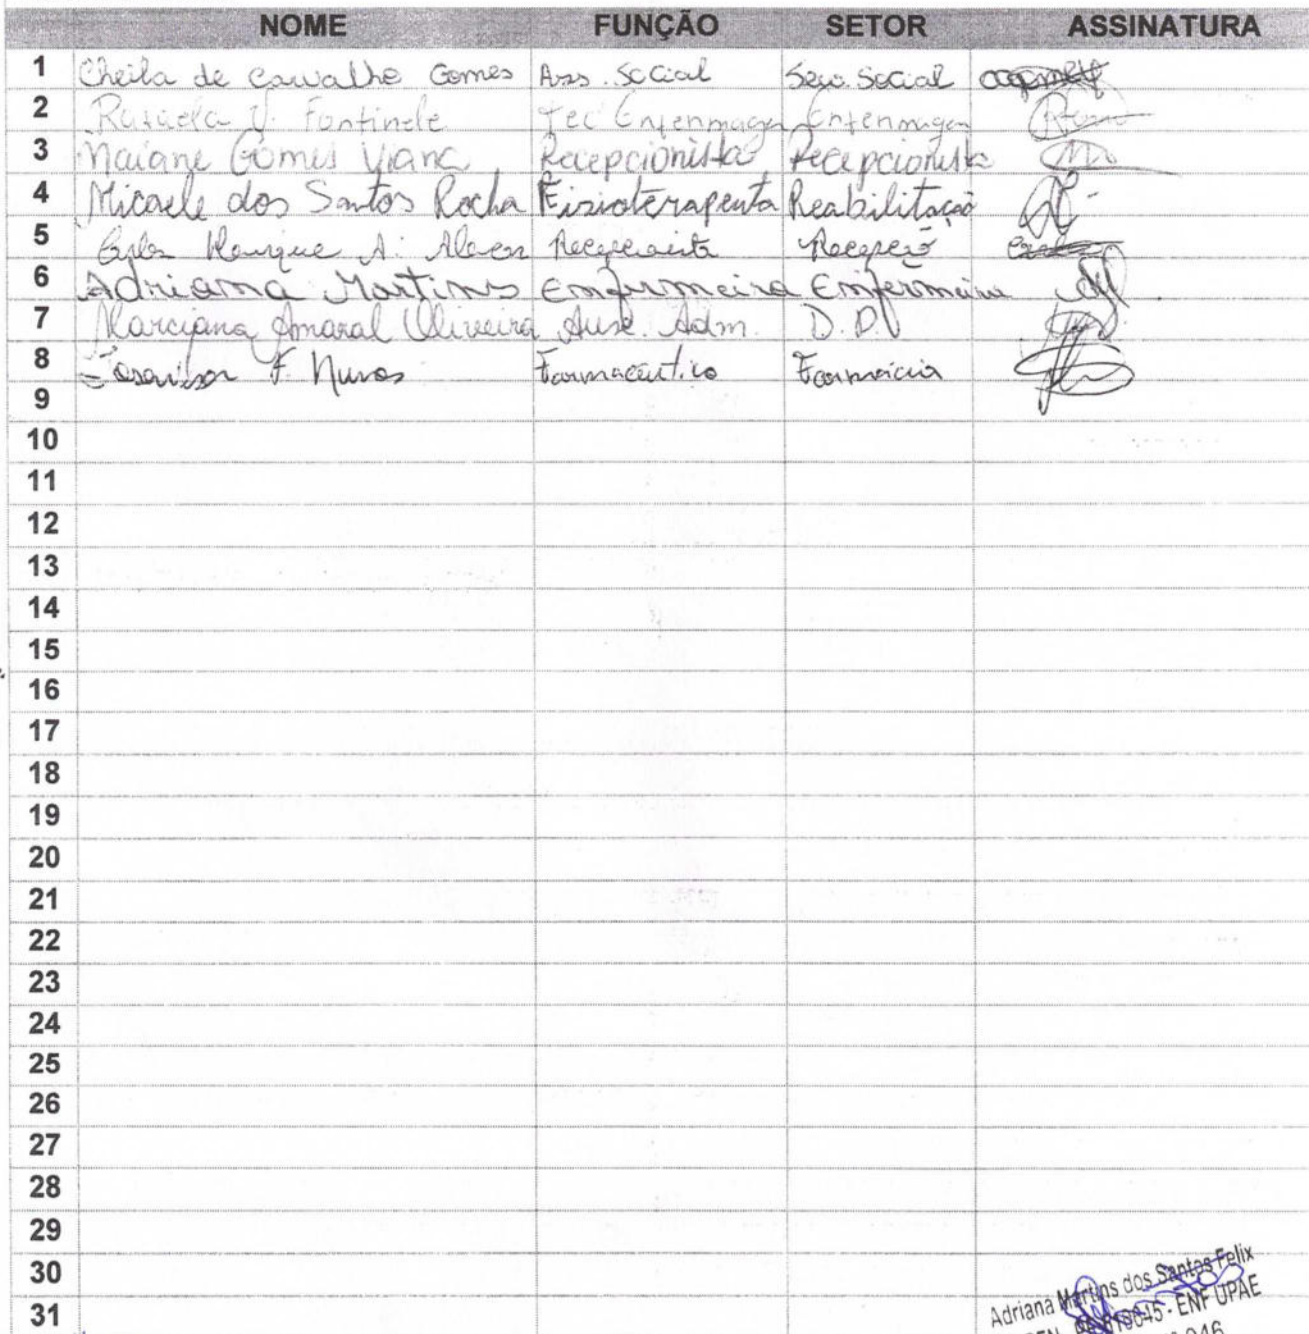 NOME FUNÇÃO SETOR ASSINATURA
1 Cheila de Carvalho Gomes Ass. Social Serv. Social
2 Rafaela V. Fontinele Tec Enfermagem Enfermagem
3 Naiane Gomes Viana Recepcionista Recepcionista
4 Micaele dos Santos Rocha Fisioterapeuta Reabilitação
5 Henrique A. Recepcionista Recepção
6 Adriana Martins Enfermeira Enfermeira
7 Marciana Amaral Oliveira Aux. Adm. D.D
8 F. Farmacêutico Farmácia
9
10
11
12
13
14
15
16
17
18
19
20
21
22
23
24
25
26
27
28
29
30
31
Adriana Martins dos Santos Felix
- ENF UPAE